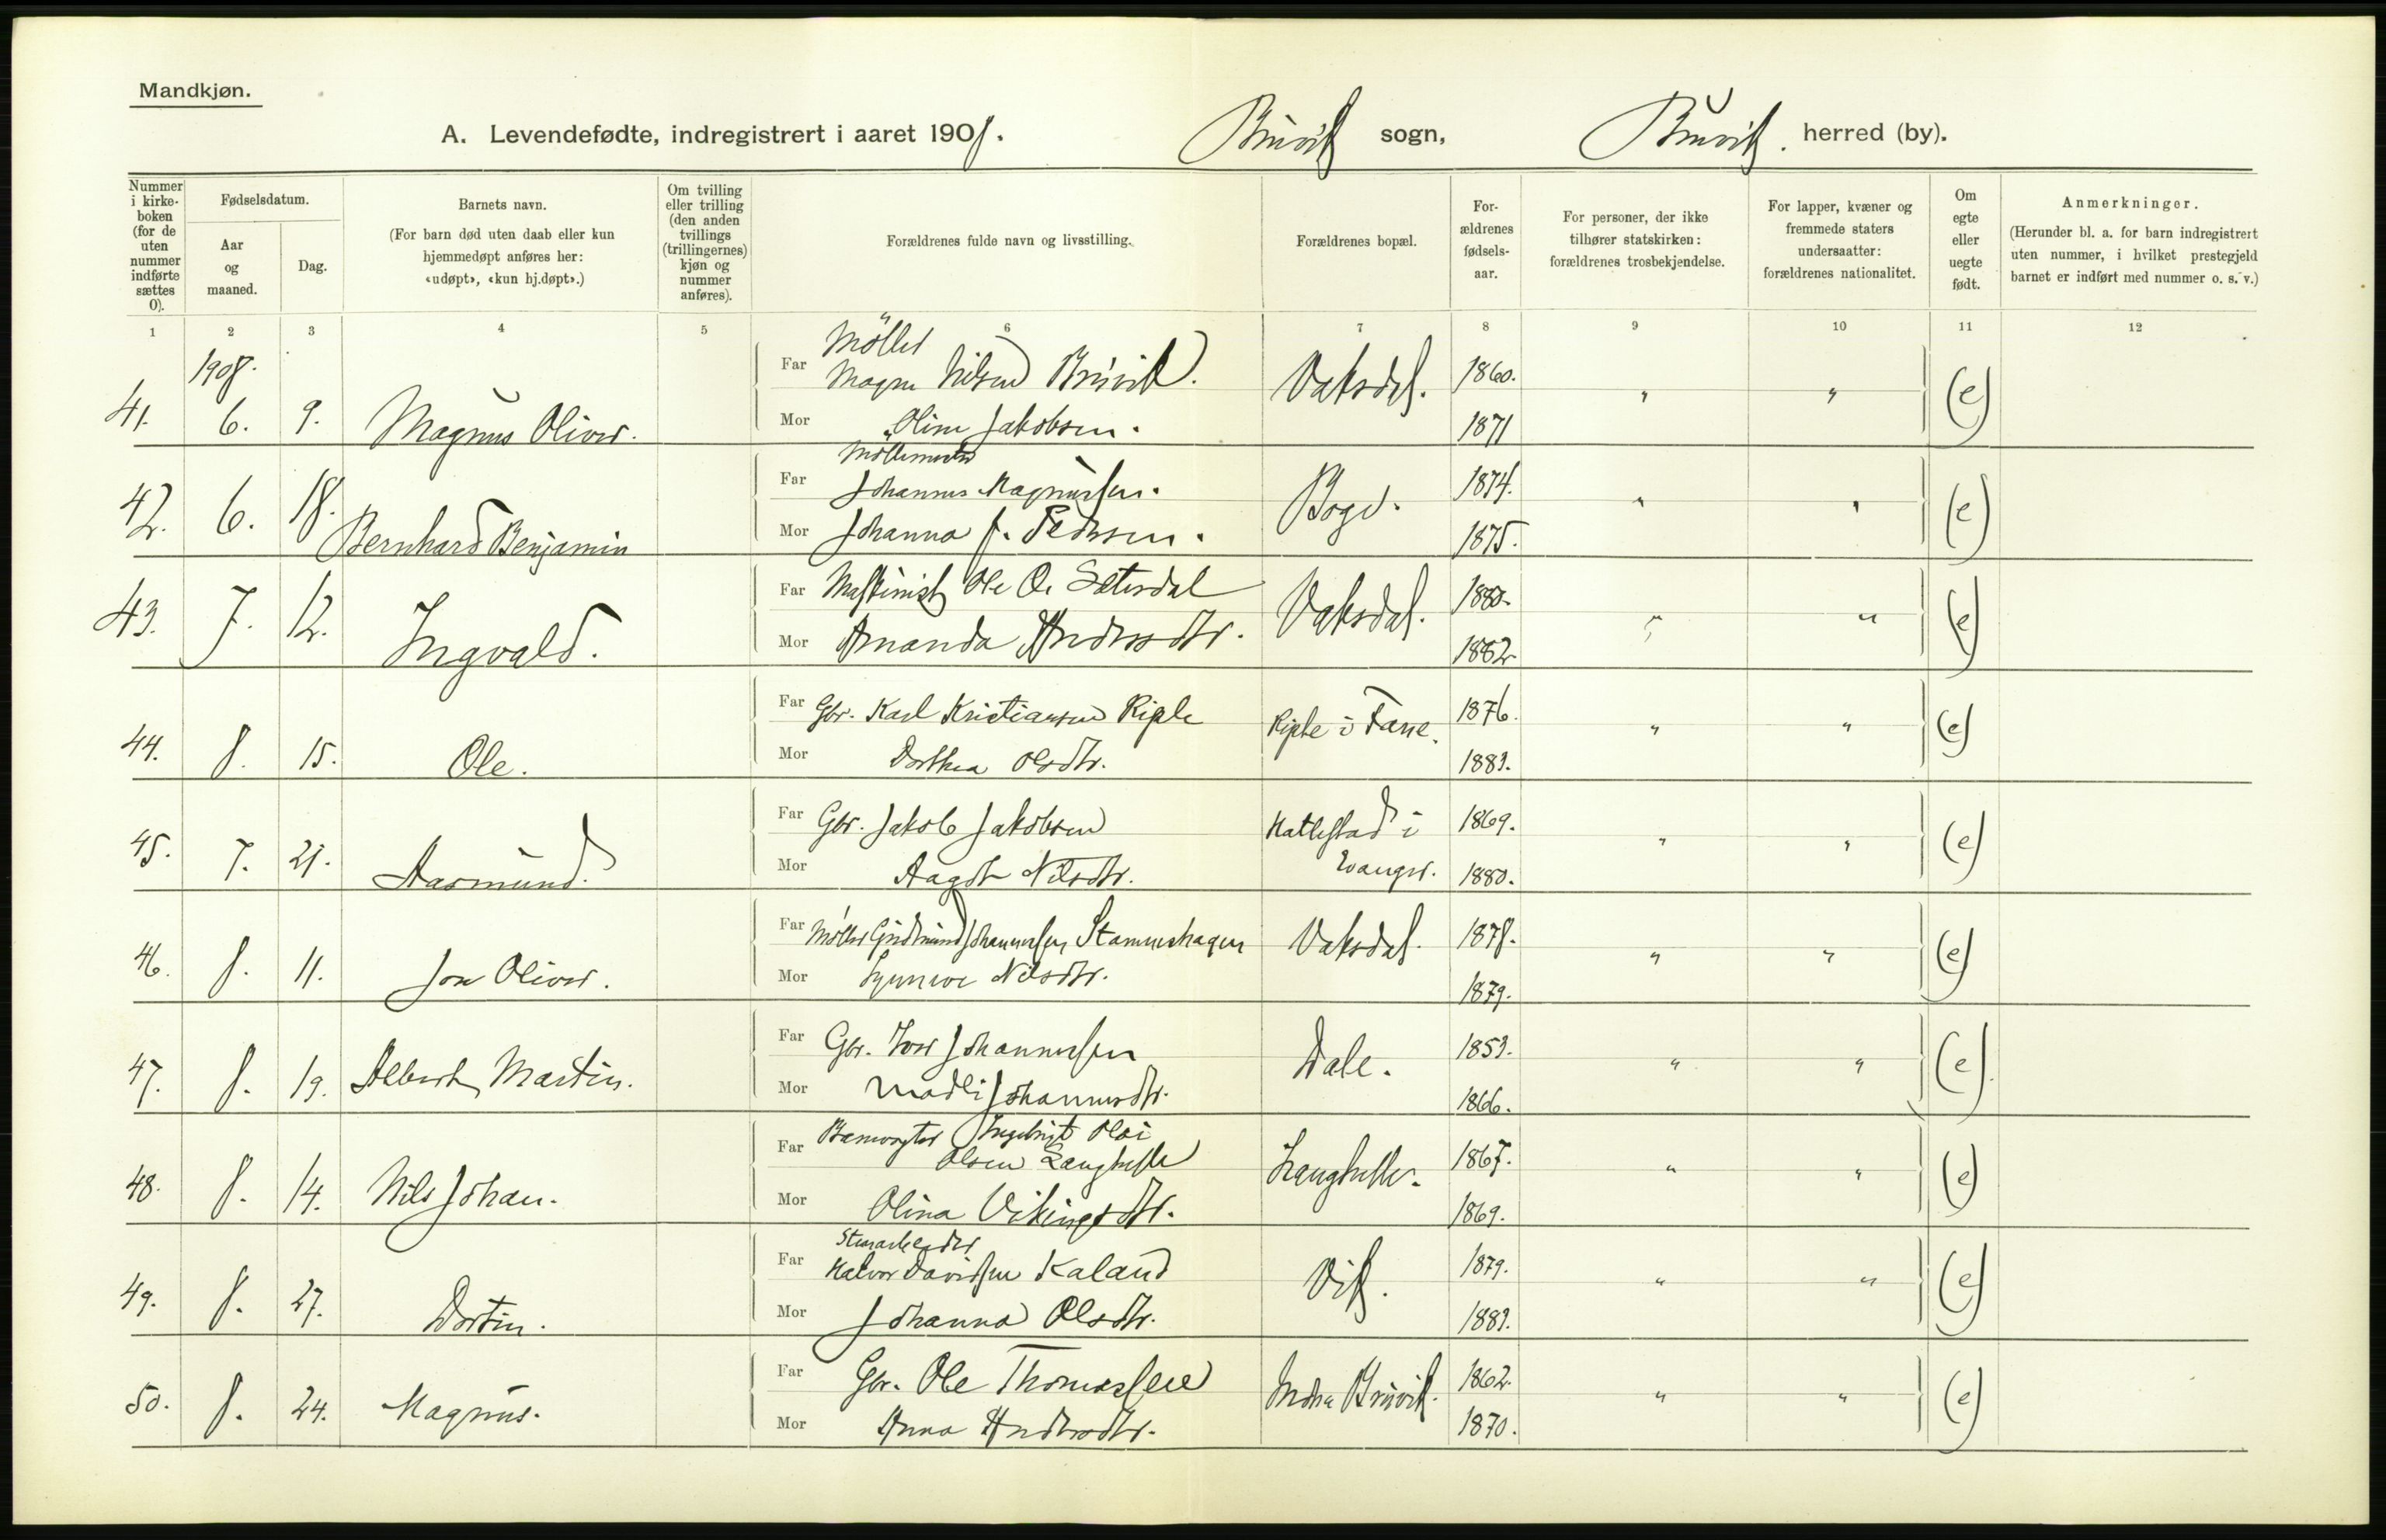 Mandkjøn.
A. Levendefødte, indregistrert i aaret 1908. Bruvik sogn, Bruvik. herred (by).
Nummer i kirke-boken (for de uten nummer indførte sættes 0).
Fødselsdatum.
Aar og maaned.
Dag.
Barnets navn.
(For barn død uten daab eller kun hjemmedøpt anføres her: «udøpt», «kun hj.døpt».)
Om tvilling eller trilling (den anden tvillings (trillingernes) kjøn og nummer anføres).
Forældrenes fulde navn og livsstilling.
Forældrenes bopæl.
For-ældrenes fødsels-aar.
For personer, der ikke tilhører statskirken: forældrenes trosbekjendelse.
For lapper, kvæner og fremmede staters undersaatter: forældrenes nationalitet.
Om egte eller uegte født.
Anmerkninger.
(Herunder bl. a. for barn indregistrert uten nummer, i hvilket prestegjeld barnet er indført med nummer o. s. v.)
1 2 3 4 5 6 7 8 9 10 11 12
1908.
41. 6. 9. Magnus Oliver.
Far Møller Magne Nilsen Bruvik. Vaksdal. 1860. " " (e)
Mor Oline Jakobsen. 1871
42. 6. 18. Bernhard Benjamin
Far Møllemester Johannes Magnussen. Boge. 1874. " " (e)
Mor Johanna J. Pedersen. 1875.
43. 7. 12. Ingvald.
Far Maskinist Ole O. Sætersdal Vaksdal. 1880. " " (e)
Mor Amanda Andersdtr. 1882
44. 8. 15. Ole.
Far Gbr. Karl Kristiansen Riple Riple i Fane. 1876. " " (e)
Mor Dorthea Olsdtr. 1883.
45. 7. 21. Aasmund.
Far Gbr. Jakob Jakobsen Hatlestad i Evanger. 1869. " " (e)
Mor Aagot Nilsdtr. 1880.
46. 8. 11. Jon Oliver.
Far Møller Gudmund Johannessen Stamneshagen Vaksdal. 1878. " " (e)
Mor Synneve Nilsdtr. 1879.
47. 8. 19. Albert Martin.
Far Gbr. Iver Johannessen Dale. 1853. " " (e)
Mor Madli Johannesdtr. 1866.
48. 8. 14. Nils Johan.
Far Banevogter Ingebrigt Olai Olsen Langhelle Langhelle. 1867. " " (e)
Mor Olina Vikingsdtr. 1869.
49. 8. 27. Dortin.
Far Stenarbeider Halvor Davidsen Kaland Vik. 1879. " " (e)
Mor Johanna Olsdtr. 1883.
50. 8. 24. Magnus.
Far Gbr. Ole Thomassen Indre Bruvik. 1862. " " (e)
Mor Anna Andersdtr. 1870.